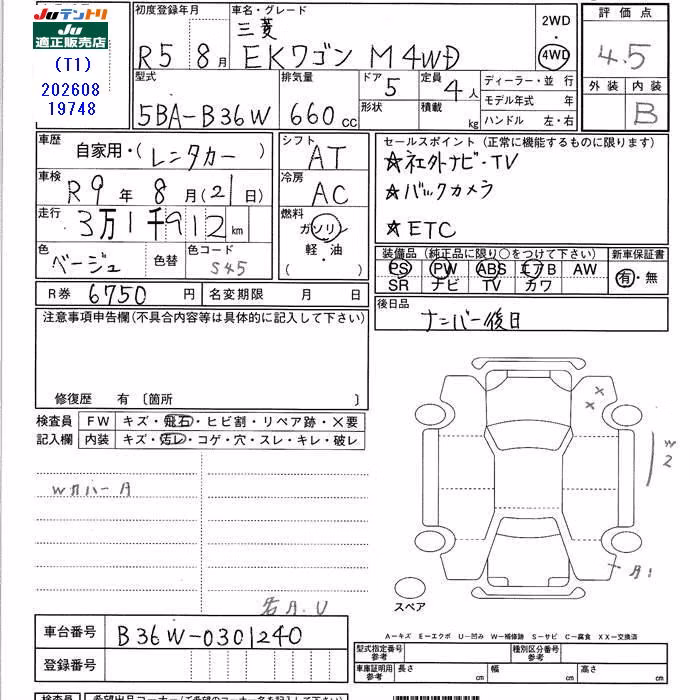 JUテントリ
JU
適正販売店
(T1)
202608
19748
初度登録年月
R5 8月
車名・グレード
三菱
EKワゴン M 4WD
2WD
・
4WD
評価点
4.5
外装 内装
B
型式
5BA-B36W
排気量
660cc
ドア
5
形状
定員
4人
積載
kg
ディーラー・並 行
モデル年式 年
ハンドル 左・右
車歴
自家用・(レンタカー)
車検
R9年 8月(21日)
走行
3万1千912km
色
ベージュ
色替
色コード
S45
シフト
AT
冷房
AC
燃料
ガソリン
軽・油
( )
セールスポイント(正常に機能するものに限ります)
☆社外ナビ・TV
☆バックカメラ
☆ETC
装備品(純正品に限り○をつけて下さい)
PS PW ABS エアB AW
SR ナビ TV カワ
新車保証書
有・無
R券 6750円
名変期限 月 日
後日品
ナンバー後日
注意事項申告欄(不具合内容等は具体的に記入して下さい)
修復歴 有〔箇所 〕
検査員
記入欄
FW キズ・飛石・ヒビ割・リペア跡・×要
内装 キズ・汚レ・コゲ・穴・スレ・キレ・破レ
Wカバー
×
×
W2
スペア
車台番号 B36W-0301240
登録番号
A-キズ E-エクボ U-凹み W-補修跡 S-サビ C-腐食 XX-交換済
型式指定番号
参考
種別区分番号
参考
車庫証明用
参考
長さ cm 幅 cm 高さ cm
検査員
希望出品コーナー(ご希望のコーナー名を記入下さい)